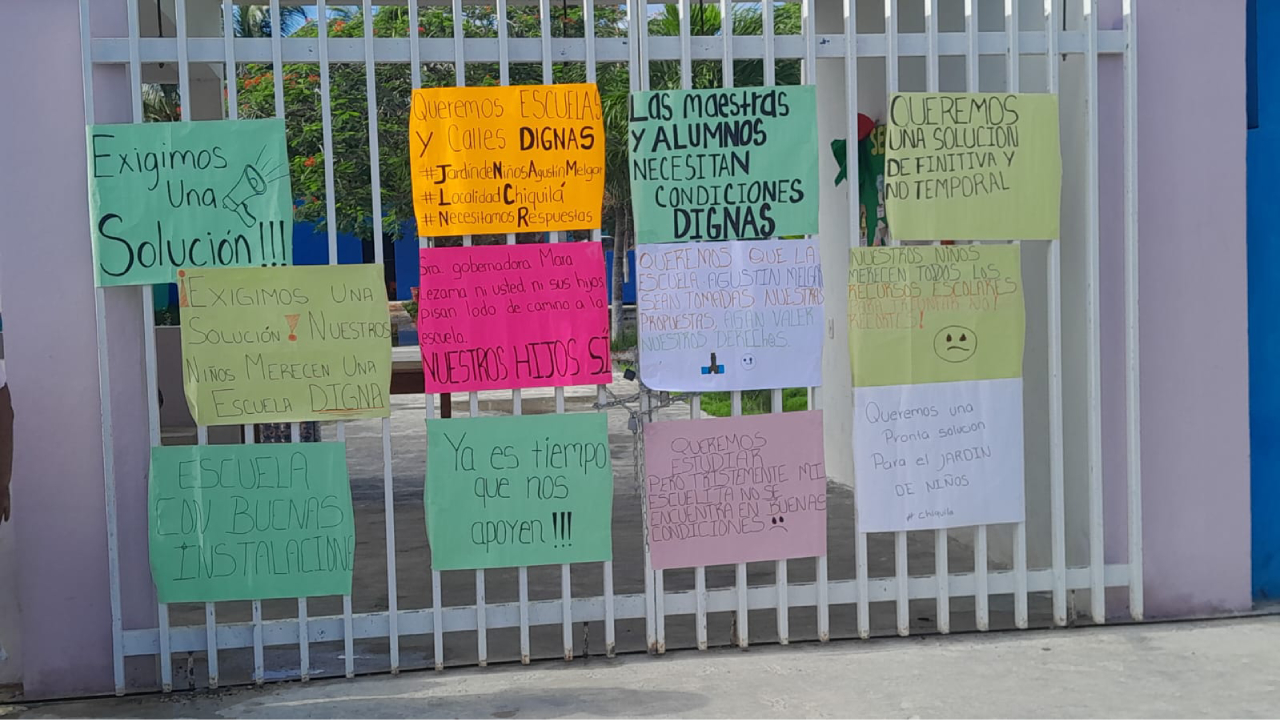 Exigimos
Una
Solución!!!
¡EXIGIMOS UNA
SOLUCIÓN! NUESTROS
NIÑOS MERECEN UNA
ESCUELA DIGNA
ESCUELA
CON BUENAS
INSTALACIONE
Queremos ESCUELAS
y Calles DIGNAS
#JardindeNiñosAgustinMelgar
#LocalidadChiquilá
#NecesitamosRespuestas
Sra. gobernadora Mara
Lezama ni usted ni sus hijos
pisan lodo de camino a la
escuela.
NUESTROS HIJOS SÍ
Ya es tiempo
que nos
apoyen!!!
Las maestras
Y ALUMNOS
NECESITAN
CONDICIONES
DIGNAS
QUEREMOS QUE LA
ESCUELA AGUSTIN MELGAR
SEAN TOMADAS NUESTRAS
PROPUESTAS, AGAN VALER
NUESTROS DERECHOS.
QUEREMOS
ESTUDIAR
PERO TRISTEMENTE MI
ESCUELITA NO SE
ENCUENTRA EN BUENAS
CONDICIONES
QUEREMOS
UNA SOLUCION
DEFINITIVA Y
NO TEMPORAL
NUESTROS NIÑOS
MERECEN TODOS LOS
RECURSOS ESCOLARES
RECORTES!
Queremos una
Pronta solución
Para el JARDIN
DE NIÑOS
#chiquila